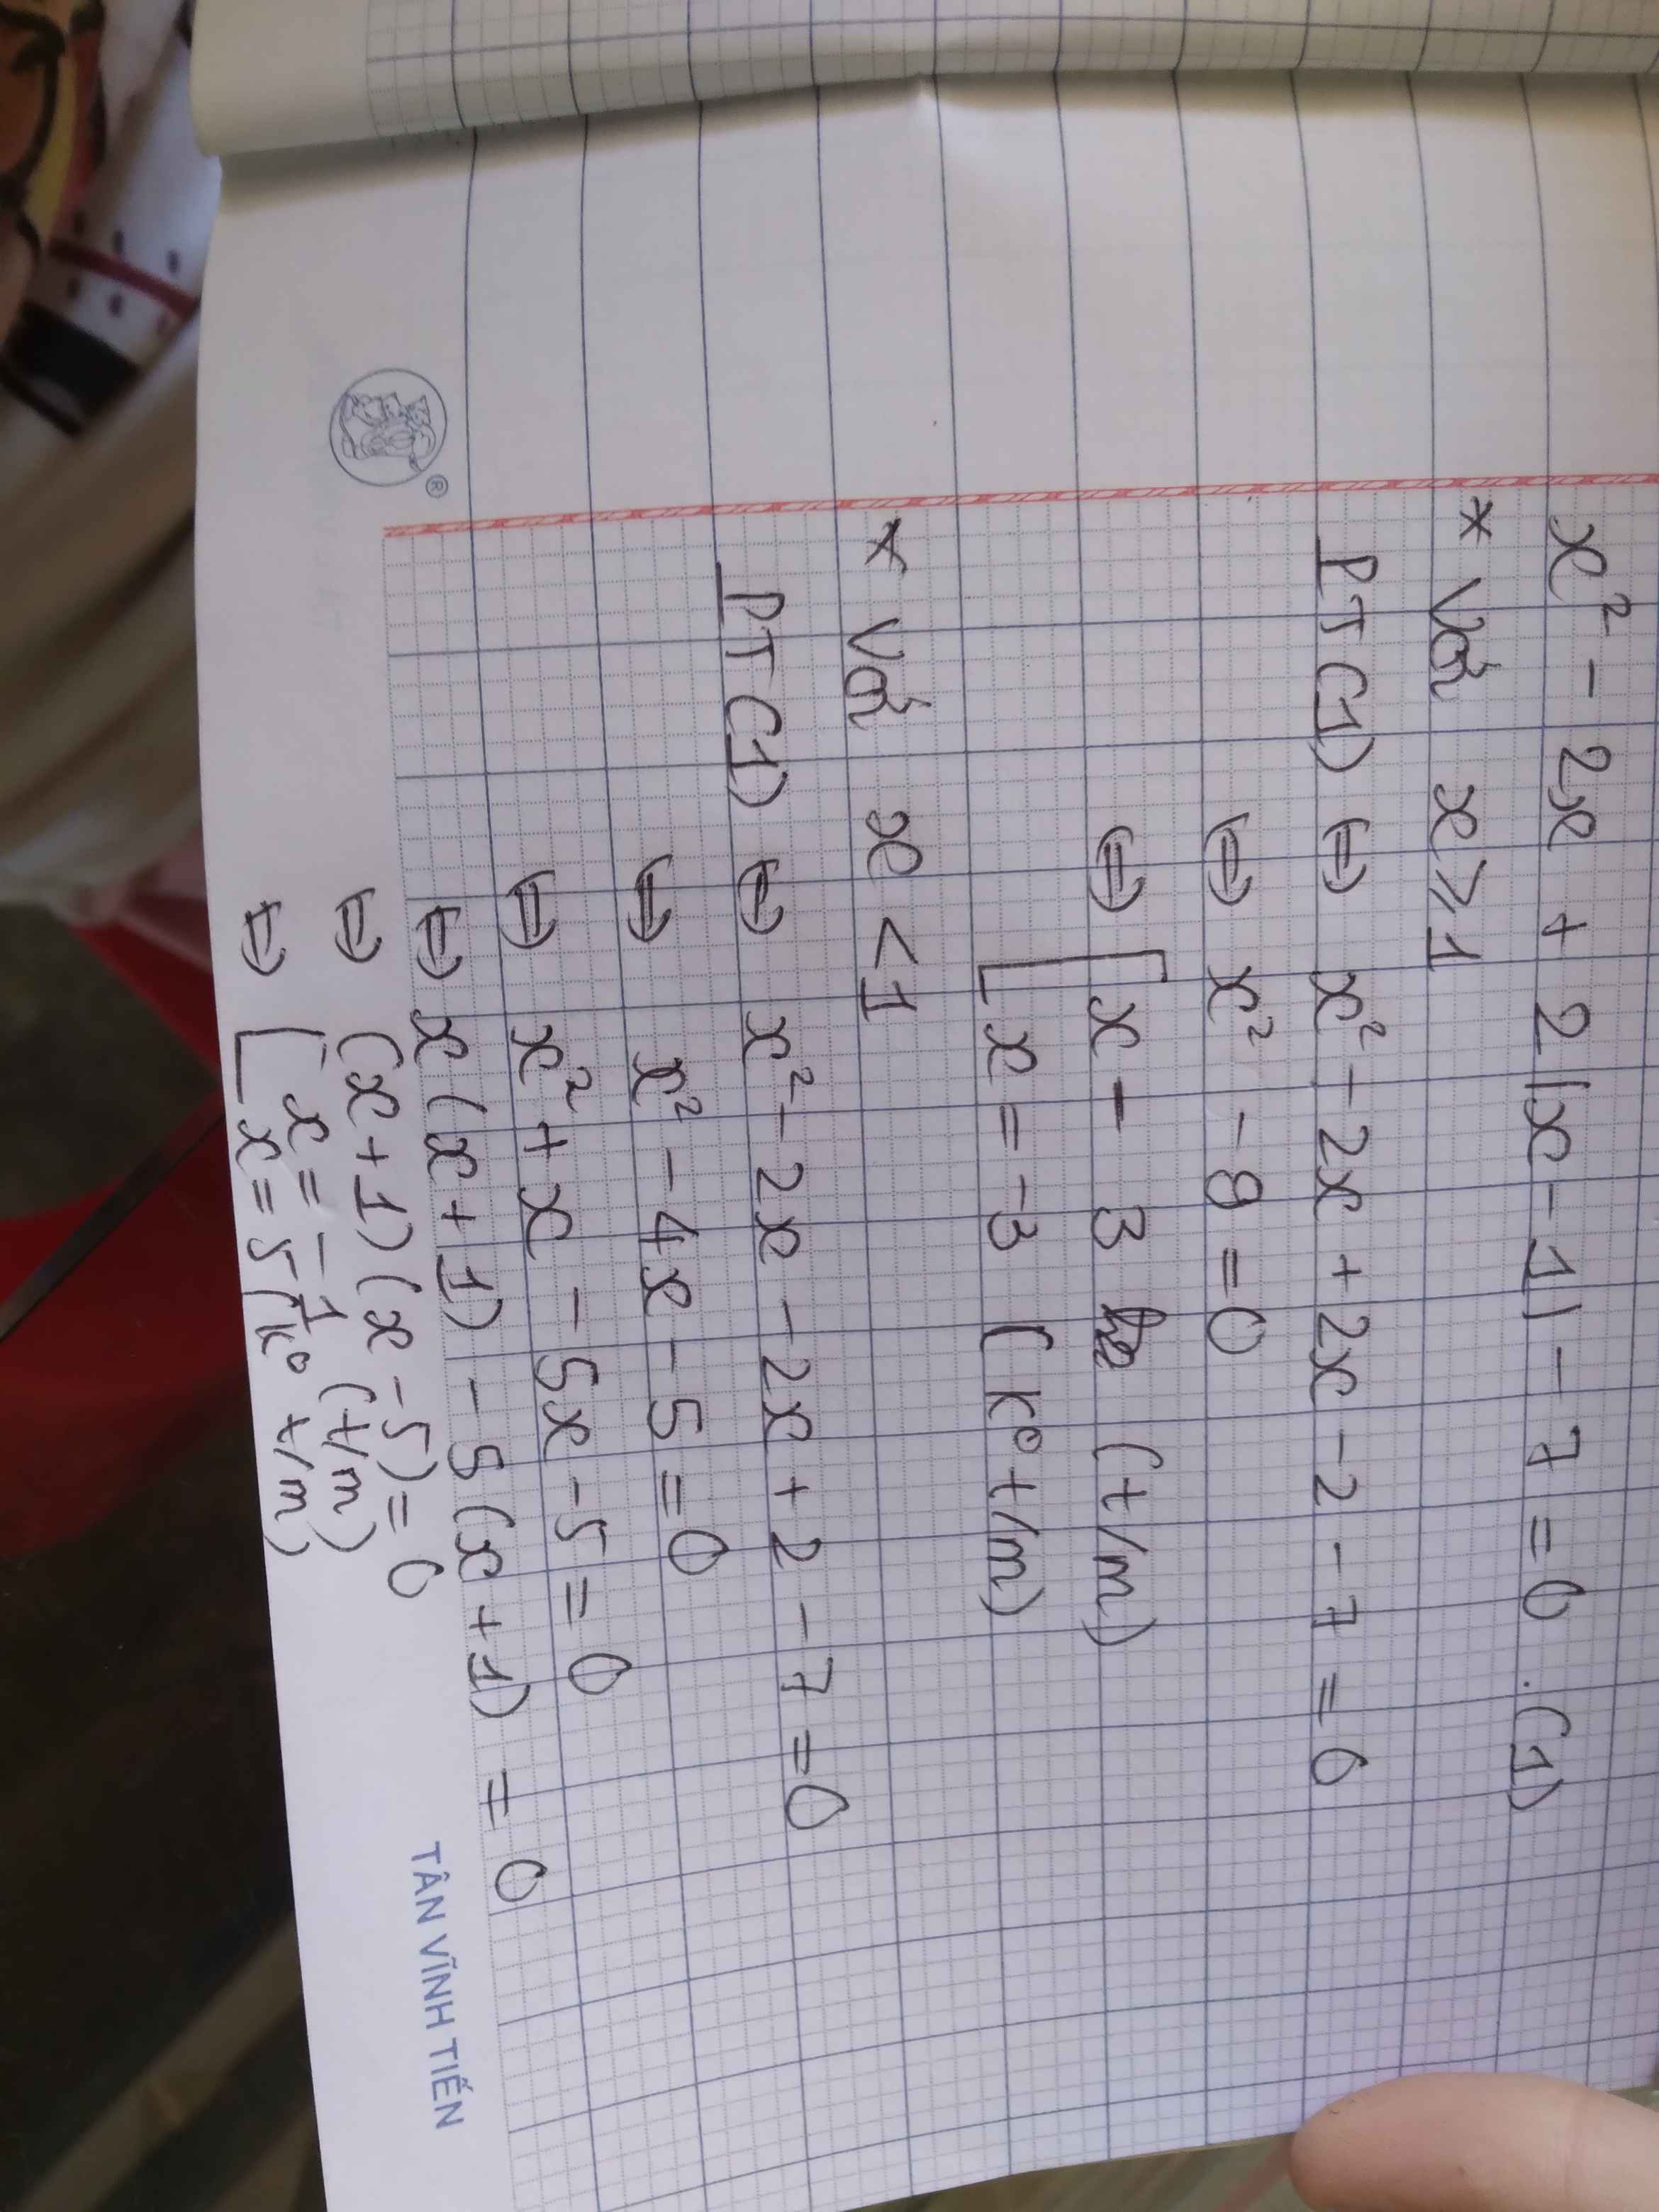 x² - 2x + 2|x - 1| - 7 = 0 . (1)
* Với x ⩾ 1
PT (1) ⇔ x² - 2x + 2x - 2 - 7 = 0
⇔ x² - 9 = 0
⇔ [ x = 3 (t/m)
[ x = -3 (k° t/m)
* Với x < 1
PT (1) ⇔ x² - 2x - 2x + 2 - 7 = 0
⇔ x² - 4x - 5 = 0
⇔ x² + x - 5x - 5 = 0
⇔ x (x + 1) - 5 (x + 1) = 0
⇔ (x + 1) (x - 5) = 0
⇔ [ x = -1 (t/m)
[ x = 5 (k° t/m)
®
TÂN VĨNH TIẾN